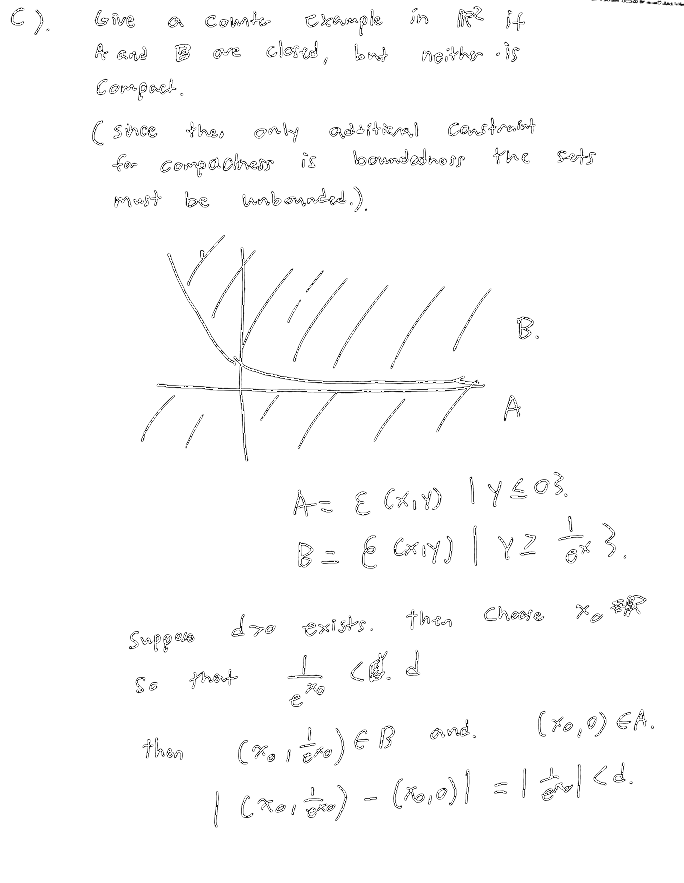 C). Give a counter example in ℝ² if
A and B are closed, but neither is
Compact.
(since the only additional constraint
for compactness is boundedness the sets
must be unbounded.).
B.
A
A = {(x,y) | y ≤ 0}.
B = {(x,y) | y ≥ 1/e^x}.
Suppose d>0 exists. then choose x₀
so that 1/e^x₀ < d
then (x₀, 1/e^x₀) ∈ B and. (x₀,0) ∈ A.
|(x₀, 1/e^x₀) - (x₀,0)| = |1/e^x₀| < d.